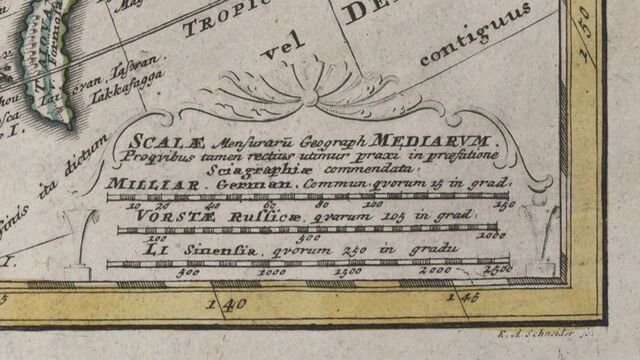 TROPIC
DE
vel
contiguus
Formosa
ovan, Taiwan.
Takkasagga
I.
finis ita dictum
SCALÆ Mensurarū Geograph MEDIARVM.
Proqvibus tamen rectius utimur praxi in præfatione
Sciagraphiæ commendata:
MILLIAR. German. Commun qvorum 15 in grad:
10 20 40 60 80 100 150
VORSTÆ Russicæ, qvarum 105 in grad:
100 500 1000
LI Sinensia, qvorum 250 in gradu
500 1000 1500 2000 2500
I.
5 140 145
150
K. A. Schneider sc.